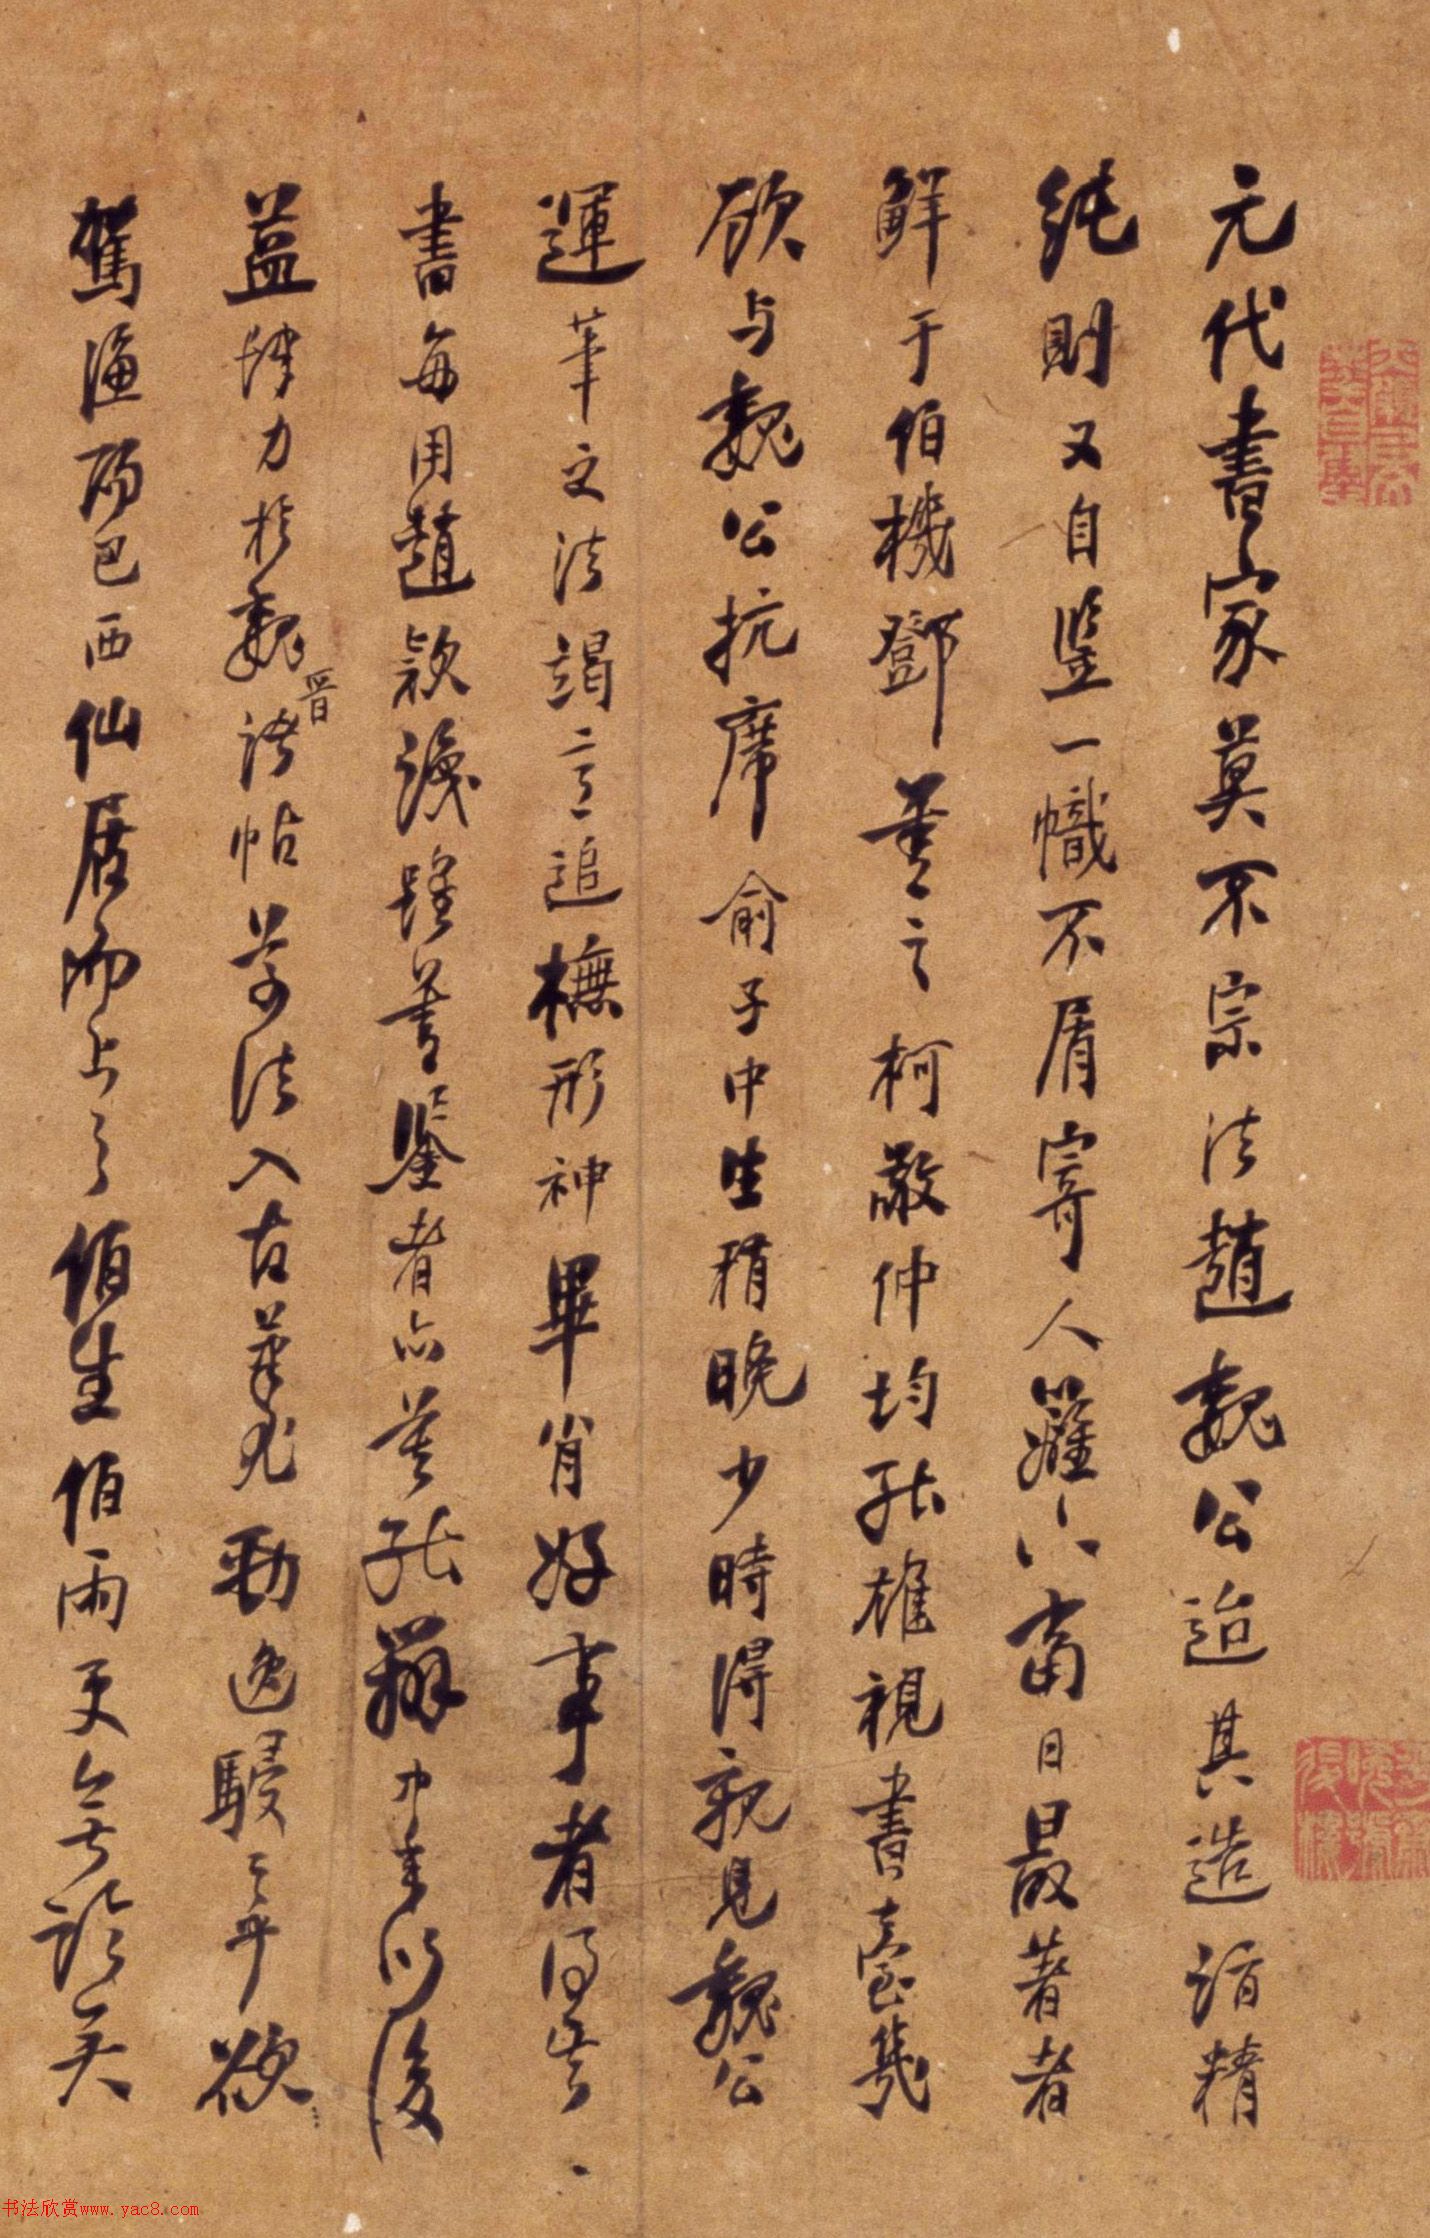 元代書家莫不宗法趙魏公迨其造詣精
純則又自竪一幟不屑寄人籬下當日最著者
鮮于伯機鄧善之柯敬仲均能雄視書臺幾
欲与魏公抗席俞子中生稍晚少時得親見魏公
運筆之法竭意追橅形神畢肖好事者得其
書每用趙款識雖善鑒者亦莫能辨中年以後
益肆力於魏晋法帖草法入古筆見勁逸駸駸乎欲
駕漁陽巴西仙居而上之伯生伯雨更無論矣
书法欣赏www.yac8.com